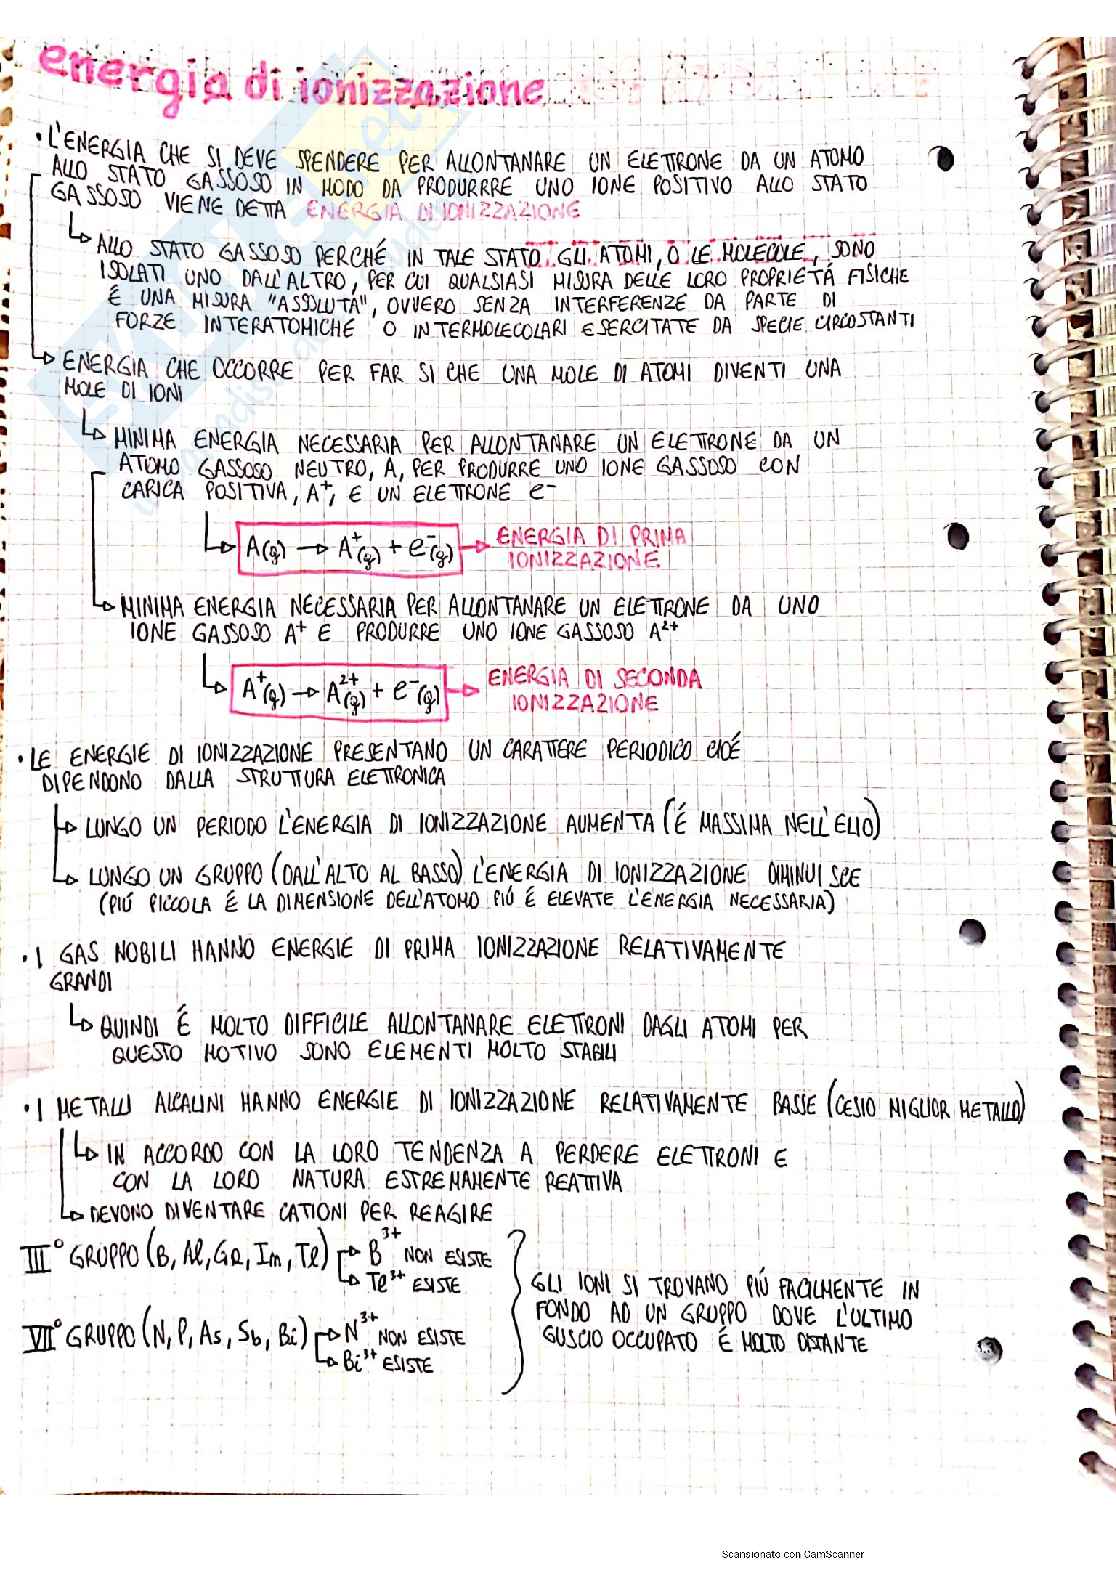 energia di ionizzazione
• L'ENERGIA CHE SI DEVE SPENDERE PER ALLONTANARE UN ELETTRONE DA UN ATOMO
ALLO STATO GASSOSO IN MODO DA PRODURRRE UNO IONE POSITIVO ALLO STATO
GASSOSO VIENE DETTA ENERGIA DI IONIZZAZIONE
ALLO STATO GASSOSO PERCHÉ IN TALE STATO GLI ATOMI, O LE MOLECOLE, SONO
ISOLATI UNO DALL'ALTRO, PER CUI QUALSIASI MISURA DELLE LORO PROPRIETÁ FISICHE
É UNA MISURA "ASSOLUTA", OVVERO SENZA INTERFERENZE DA PARTE DI
FORZE INTERATOMICHE O INTERMOLECOLARI ESERCITATE DA SPECIE CIRCOSTANTI
ENERGIA CHE OCCORRE PER FAR SI CHE UNA MOLE DI ATOMI DIVENTI UNA
MOLE DI IONI
MINIMA ENERGIA NECESSARIA PER ALLONTANARE UN ELETTRONE DA UN
ATOMO GASSOSO NEUTRO, A, PER PRODURRE UNO IONE GASSOSO CON
CARICA POSITIVA, A⁺, E UN ELETTRONE e⁻
A(g) → A⁺(g) + e⁻(g) → ENERGIA DI PRIMA
IONIZZAZIONE
MINIMA ENERGIA NECESSARIA PER ALLONTANARE UN ELETTRONE DA UNO
IONE GASSOSO A⁺ E PRODURRE UNO IONE GASSOSO A²⁺
A⁺(g) → A²⁺(g) + e⁻(g) → ENERGIA DI SECONDA
IONIZZAZIONE
• LE ENERGIE DI IONIZZAZIONE PRESENTANO UN CARATTERE PERIODICO CIOÉ
DIPENDONO DALLA STRUTTURA ELETTRONICA
LUNGO UN PERIODO L'ENERGIA DI IONIZZAZIONE AUMENTA (É MASSIMA NELL'ELIO)
LUNGO UN GRUPPO (DALL'ALTO AL BASSO) L'ENERGIA DI IONIZZAZIONE DIMINUISCE
(PIÚ PICCOLA É LA DIMENSIONE DELL'ATOMO PIÚ É ELEVATE L'ENERGIA NECESSARIA)
• I GAS NOBILI HANNO ENERGIE DI PRIMA IONIZZAZIONE RELATIVAMENTE
GRANDI
QUINDI É MOLTO DIFFICILE ALLONTANARE ELETTRONI DAGLI ATOMI PER
QUESTO MOTIVO SONO ELEMENTI MOLTO STABILI
• I METALLI ALCALINI HANNO ENERGIE DI IONIZZAZIONE RELATIVAMENTE BASSE (CESIO MIGLIOR METALLO)
IN ACCORDO CON LA LORO TENDENZA A PERDERE ELETTRONI E
CON LA LORO NATURA ESTREMAMENTE REATTIVA
DEVONO DIVENTARE CATIONI PER REAGIRE
III° GRUPPO (B, Al, Ga, Im, Tl) → B³⁺ NON ESISTE
Te³⁺ ESISTE
VII° GRUPPO (N, P, As, Sb, Bi) → N³⁺ NON ESISTE
Bi³⁺ ESISTE
GLI IONI SI TROVANO PIÚ FACILMENTE IN
FONDO AD UN GRUPPO DOVE L'ULTIMO
GUSCIO OCCUPATO É MOLTO DISTANTE
Scansionato con CamScanner